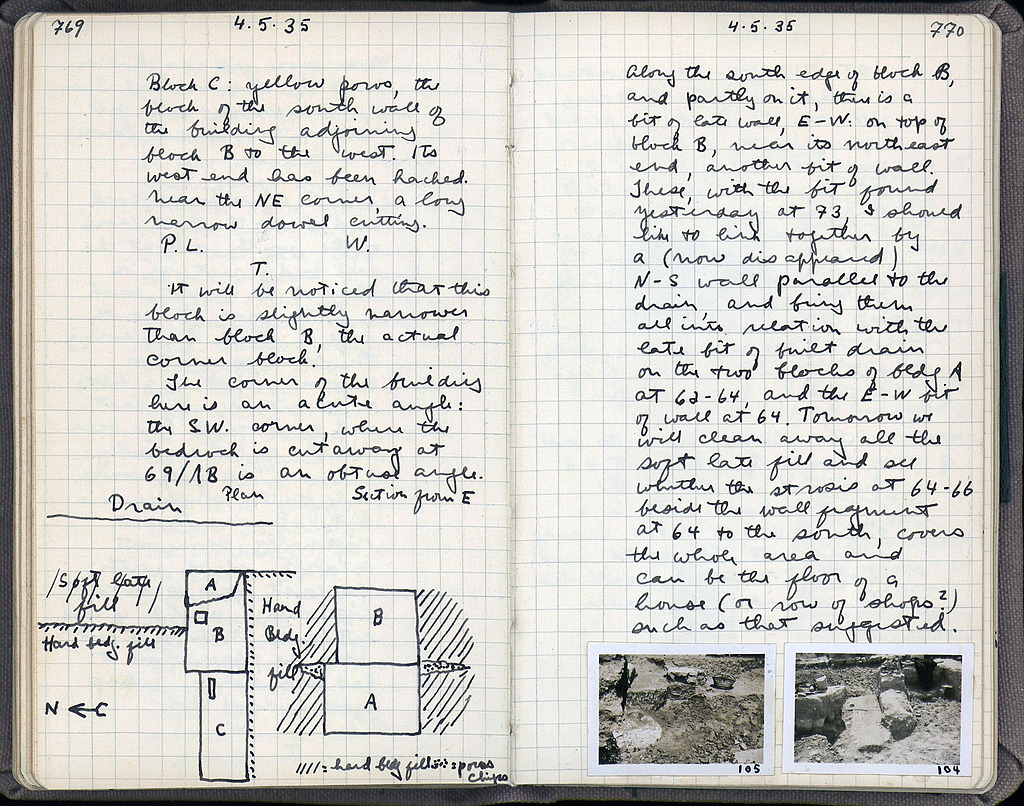 769
4.5.35
Block C: yellow poros, the
block of the south wall of
the building adjoining
block B to the west. Its
west end has been hacked.
Near the NE corner, a long
narrow dowel cutting.
P. L. W.
T.
It will be noticed that this
block is slightly narrower
than block B, the actual
corner block.
The corner of the building
here is an acute angle:
the SW. corner, where the
bedrock is cut away at
69/ΛB is an obtuse angle.
Drain
Plan
Section from E
Soft late
fill
Hard bldg. fill
A
B
C
Hard
Bldg.
fill
N
B
A
: hard bldg fill : poros
chips
4.5.35
770
Along the south edge of block B,
and partly on it, there is a
bit of late wall, E-W: on top of
block B, near its northeast
end, another bit of wall.
These, with the bit found
yesterday at 73, I should
like to link together by
a (now disappeared)
N-S wall parallel to the
drain, and bring them
all into relation with the
late bit of built drain
on the two blocks of bldg A
at 62-64, and the E-W bit
of wall at 64. Tomorrow we
will clean away all the
soft late fill and see
whether the strosis at 64-66
beside the wall fragment
at 64 to the south, covers
the whole area and
can be the floor of a
house (or row of shops?)
such as that suggested.
105
104